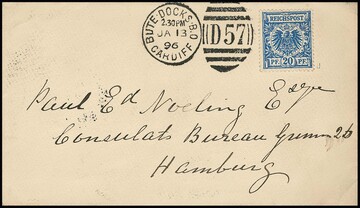 BUTE-DOCKS-B.O
2.30PM
JA 13
96
CARDIFF
D57
REICHSPOST
PF. 20 PF.
Paul Ed Noelting Esqre
Consulats Bureau 26
Hamburg